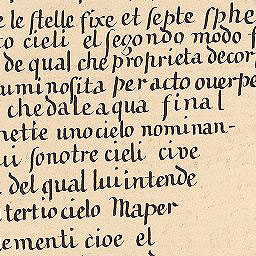 e le stelle fixe et septe sphe
to cieli el segondo modo
de qual che proprieta decor
luminosita per acto ouer pe
che da le a qua final
mette uno cielo nominan-
ui sono tre cieli cive
del qual lui intende
tertio cielo Maper
lementi cioe el